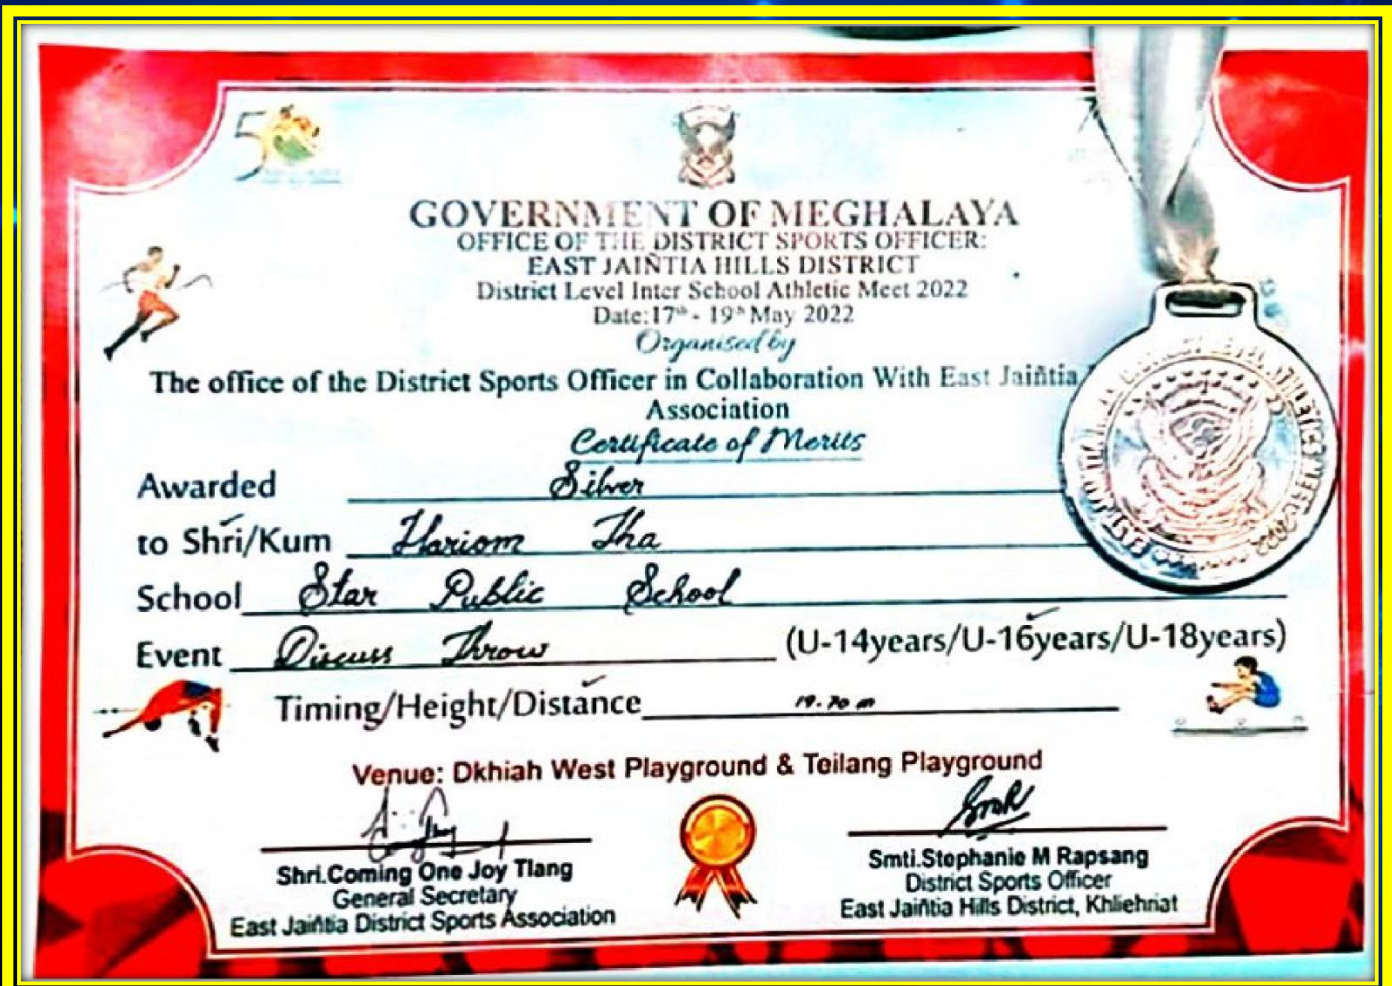 GOVERNMENT OF MEGHALAYA
OFFICE OF THE DISTRICT SPORTS OFFICER:
EAST JAIÑTIA HILLS DISTRICT
District Level Inter School Athletic Meet 2022
Date:17th - 19th May 2022
Organised by
The office of the District Sports Officer in Collaboration With East Jaiñtia
Association
Certificate of Merits
Awarded Silver
to Shri/Kum Hariom Jha
School Star Public School
Event Discuss Throw (U-14years/U-16years/U-18years)
Timing/Height/Distance 19.70 m
Venue: Dkhiah West Playground & Teilang Playground
Shri.Coming One Joy Tlang
General Secretary
East Jaiñtia District Sports Association
Smti.Stephanie M Rapsang
District Sports Officer
East Jaiñtia Hills District, Khliehriat